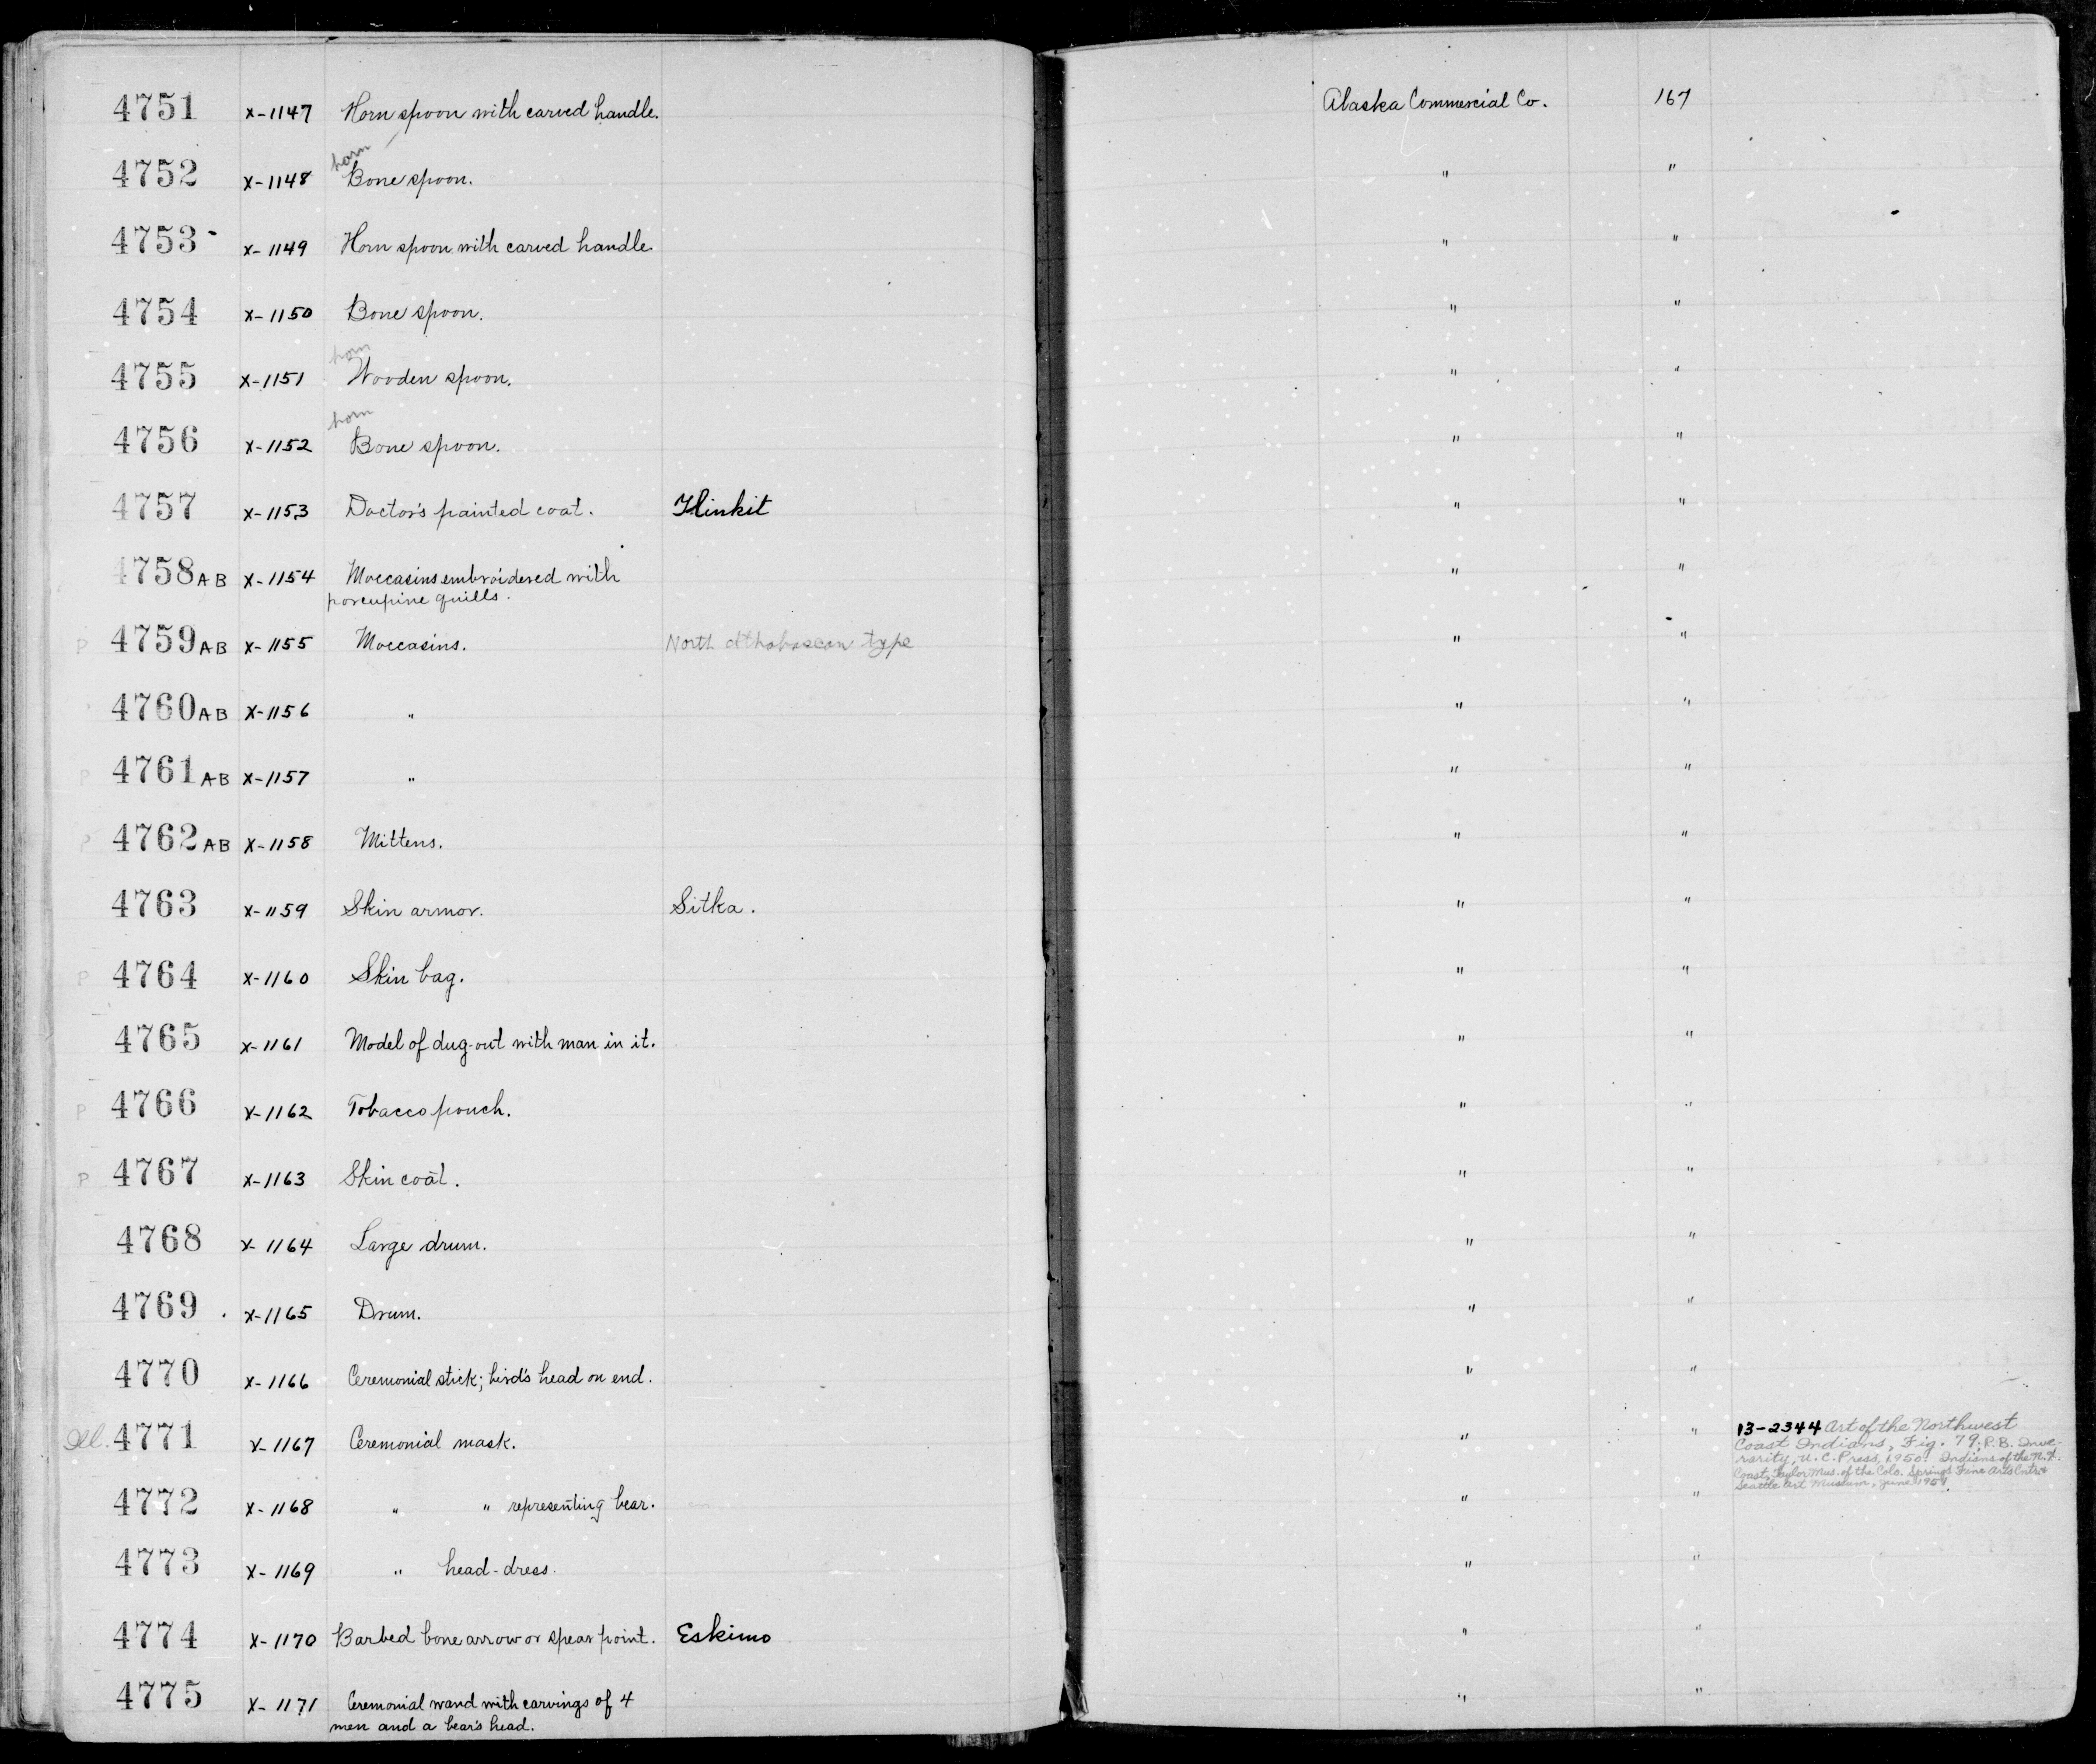 4751 X-1147 Horn spoon with carved handle. Alaska Commercial Co. 167
horn
4752 X-1148 Bone spoon. " "
4753 X-1149 Horn spoon with carved handle. " "
4754 X-1150 Bone spoon. " "
horn
4755 X-1151 Wooden spoon. " "
horn
4756 X-1152 Bone spoon. " "
4757 X-1153 Doctor's painted coat. Tlinkit " "
4758 AB X-1154 Moccasins embroidered with " "
porcupine quills.
P 4759 AB X-1155 Moccasins. North Athabascan type " "
4760 AB X-1156 " " "
P 4761 AB X-1157 " " "
P 4762 AB X-1158 Mittens. " "
4763 X-1159 Skin armor. Sitka. " "
P 4764 X-1160 Skin bag. " "
4765 X-1161 Model of dug-out with man in it. " "
P 4766 X-1162 Tobacco pouch. " "
P 4767 X-1163 Skin coat. " "
4768 X-1164 Large drum. " "
4769 X-1165 Drum. " "
4770 X-1166 Ceremonial stick; bird's head on end. " "
Ill. 4771 X-1167 Ceremonial mask. " " 13-2344 Art of the Northwest
Coast Indians, Fig. 79, R.B. Inve-
rarity, U.C. Press, 1950. Indians of the N.W.
Coast, Taylor Mus. of the Colo. Springs Fine Arts Cntr. &
Seattle Art Museum, June
4772 X-1168 " " representing bear. " "
4773 X-1169 " head-dress. " "
4774 X-1170 Barbed bone arrow or spear point. Eskimo " "
4775 X-1171 Ceremonial wand with carvings of 4 " "
men and a bear's head.